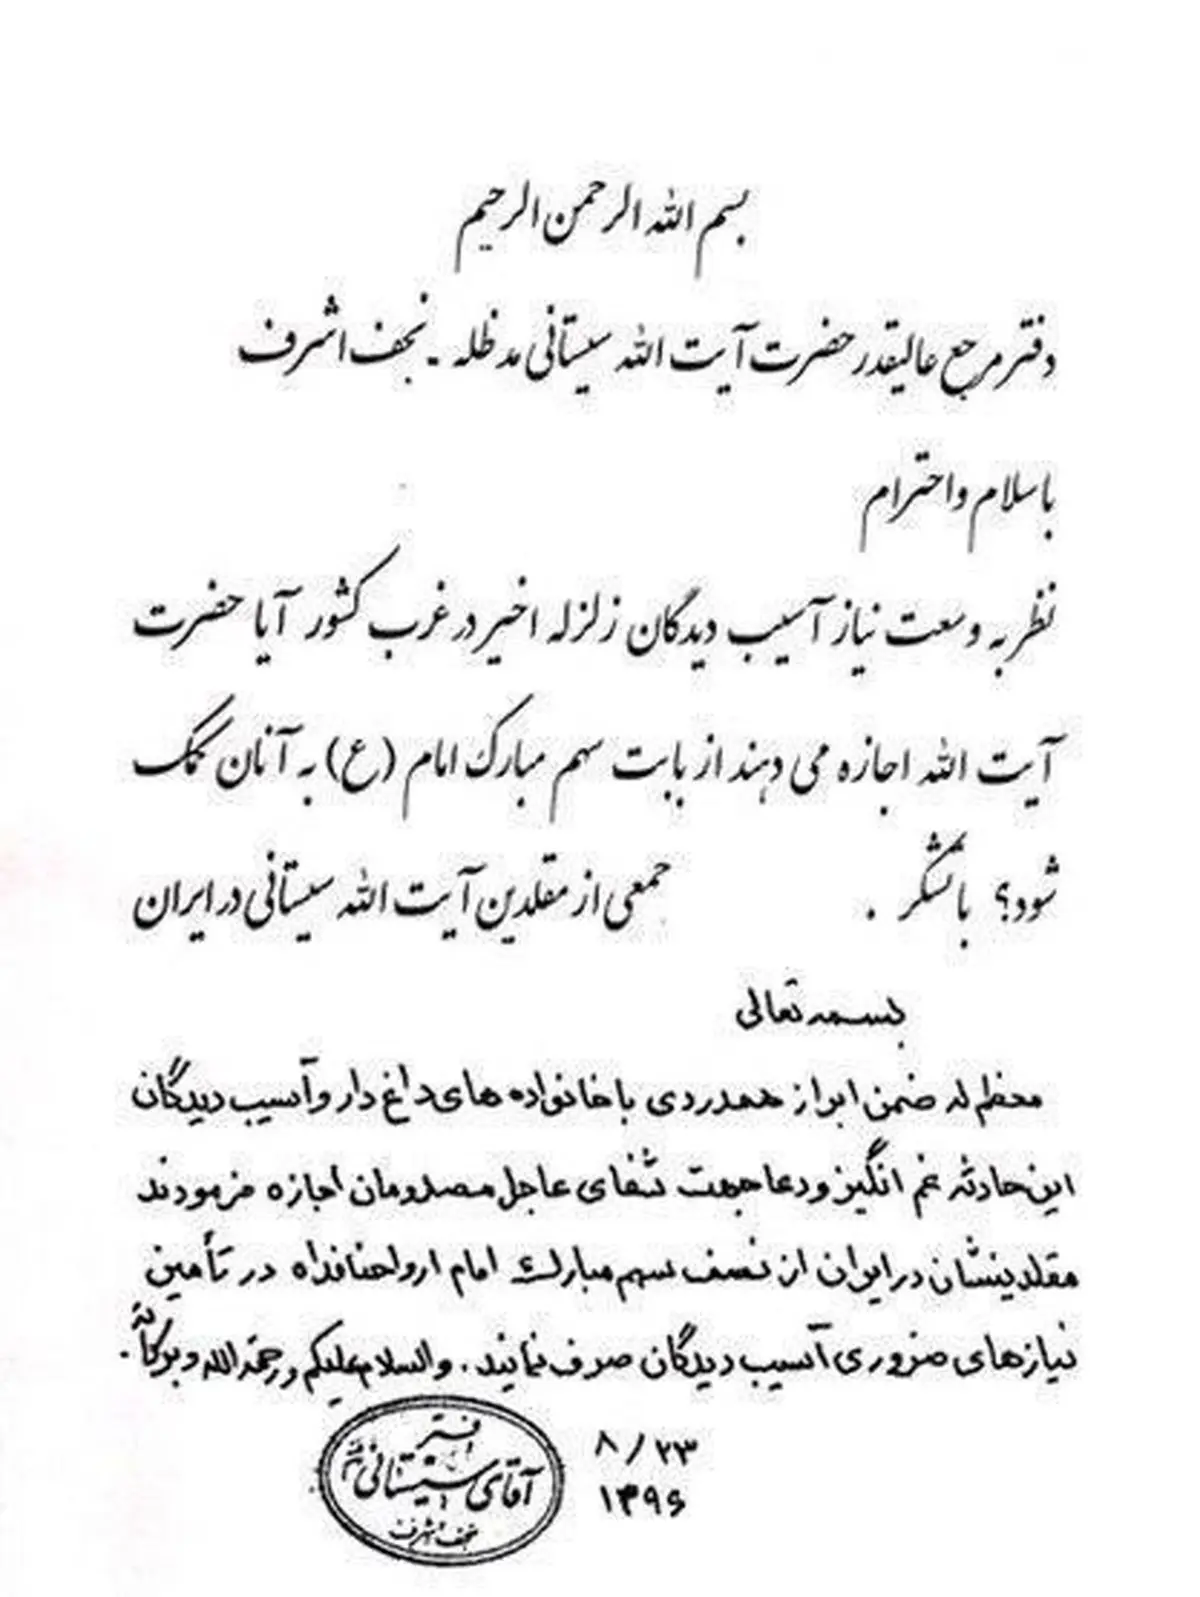 بسم الله الرحمن الرحیم
دفتر مرجع عالیقدر حضرت آیت الله سیستانی مدظله - نجف اشرف
با سلام و احترام
نظر به وسعت نیاز آسیب دیدگان زلزله اخیر در غرب کشور آیا حضرت
آیت الله اجازه می دهند از بابت سهم مبارک امام (ع) به آنان کمک
شود؟ با تشکر .
جمعی از مقلدین آیت الله سیستانی در ایران
بسمه تعالی
معظم له ضمن ابراز همدردی با خانواده های داغ دار و آسیب دیدگان
این حادثه غم انگیز و دعا جهت شفای عاجل مصدومان اجازه فرمودند
مقلدینشان در ایران از نصف سهم مبارک امام ارواحنا فداه در تأمین
نیازهای ضروری آسیب دیدگان صرف نمایند . والسلام علیکم ورحمة الله وبرکاته .
۸/۲۳
۱۳۹۶
دفتر
آقای سیستانی
نجف اشرف